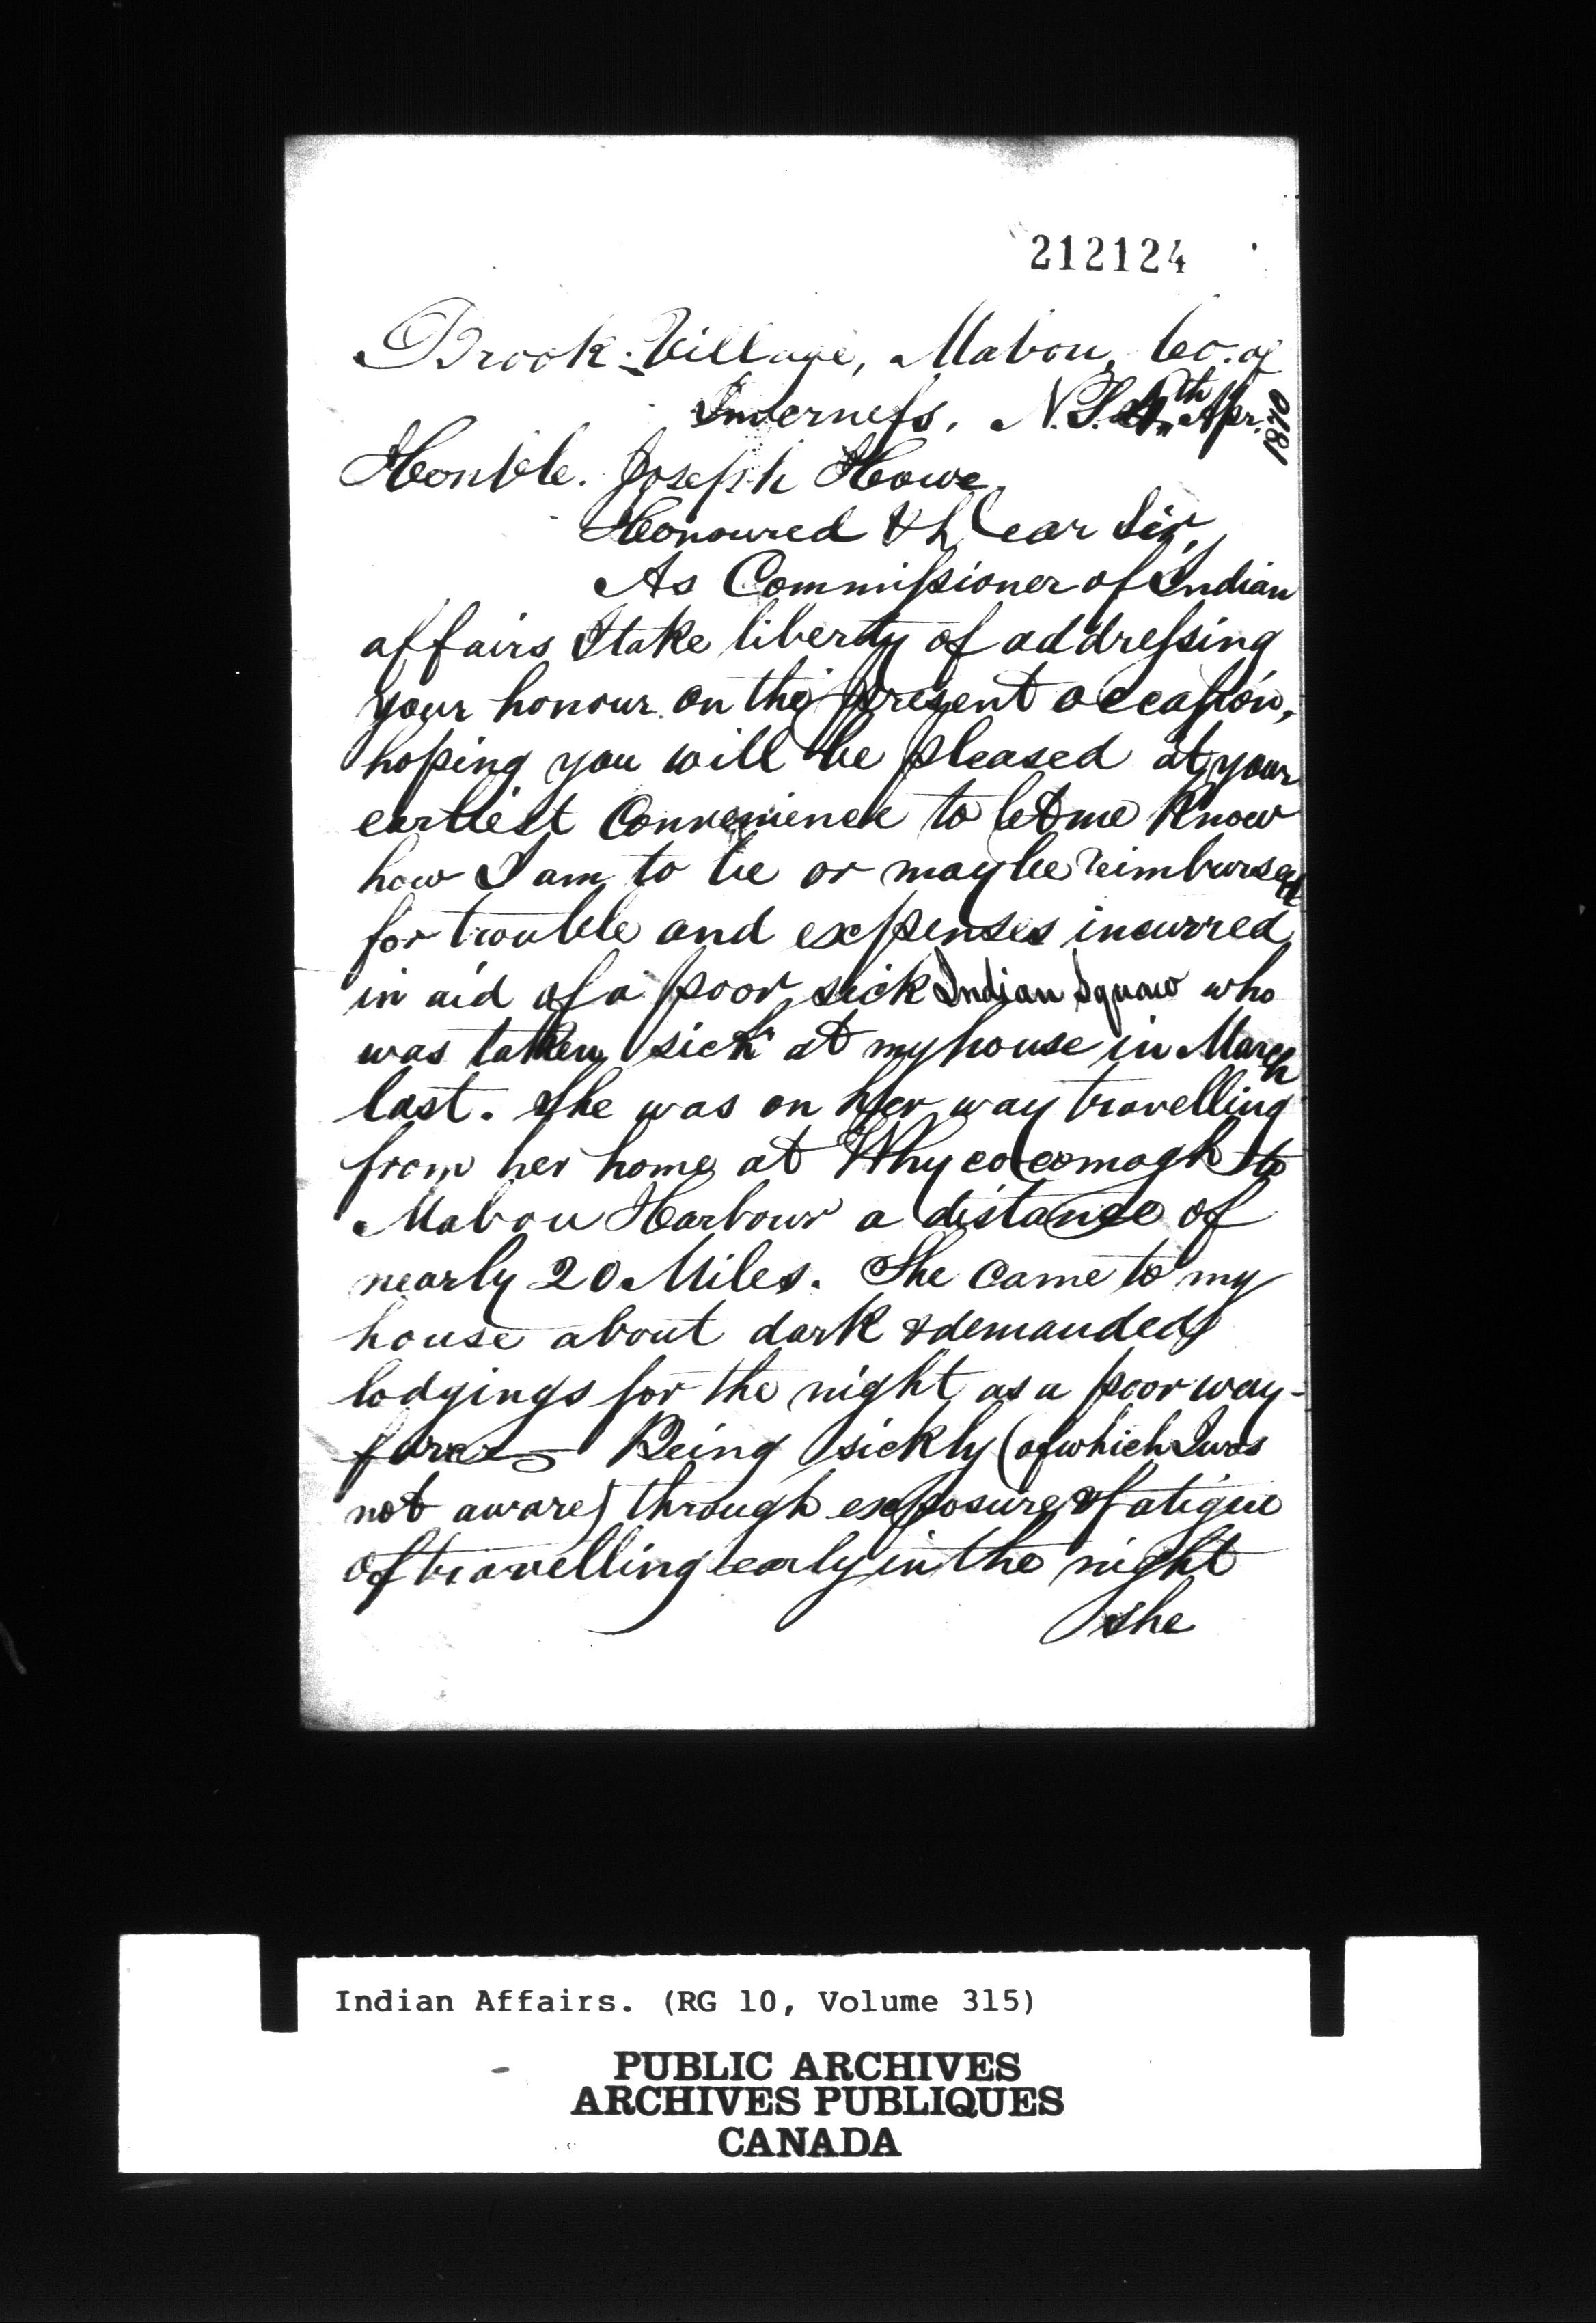 212124
Brook-Village, Mabou, Co. of
Inverness, N.S. 4th Apr. 1870
Honble. Joseph Howe.
Honoured & Dear Sir,
As Commissioner of Indian
affairs I take liberty of addressing
your honour on the present occasion,
hoping you will be pleased at your
earliest Convenience to let me know
how I am to be or may be reimbursed
for trouble and expenses incurred
in aid of a poor sick Indian Squaw who
was taken sick at my house in March
last. She was on her way travelling
from her home at Whycocomagh to
Mabou Harbour a distance of
nearly 20 Miles. She came to my
house about dark & demanded
lodgings for the night as a poor way-
farer — Being sickly (of which I was
not aware) through exposure & fatigue
of travelling early in the night
she
Indian Affairs. (RG 10, Volume 315)
PUBLIC ARCHIVES
ARCHIVES PUBLIQUES
CANADA